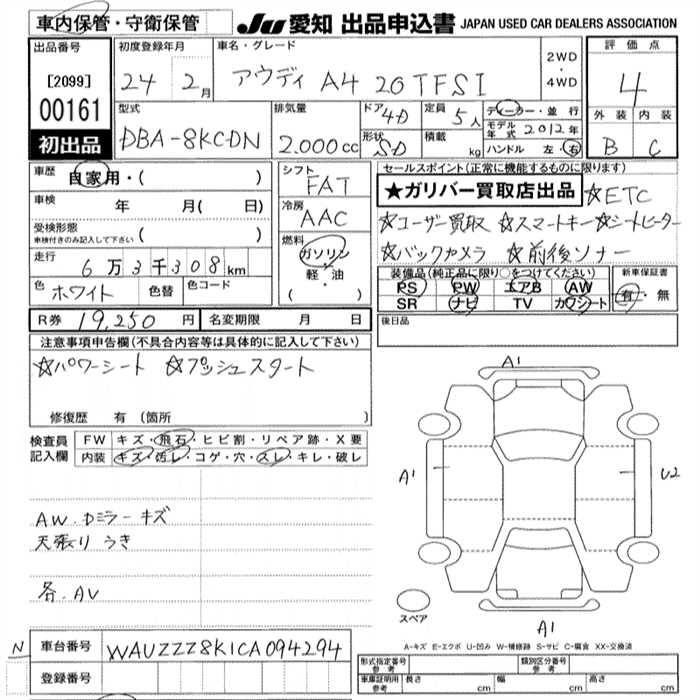 車内保管・守衛保管
JU 愛知 出品申込書 JAPAN USED CAR DEALERS ASSOCIATION
出品番号
[2099]
00161
初出品
初度登録年月
24 2月
車名・グレード
アウディ A4 20TFSI
2WD
・
4WD
評価点
4
外装 内装
B C
型式
DBA-8KCDN
排気量
2.000cc
ドア 4D
形状 SD
定員 5人
積載 kg
ディーラー・並行
モデル年式 2012年
ハンドル 左・右
車歴
自家用・( )
車検 年 月( 日)
受検形態
車検付きのみ記入して下さい ( )
走行
6万3千308km
色 ホワイト 色替 色コード
シフト
FAT
冷房
AAC
燃料
ガソリン
軽・油
( ・ )
セールスポイント(正常に機能するものに限ります)
★ガリバー買取店出品 ☆ETC
☆ユーザー買取 ☆スマートキー☆シートヒーター
☆バックカメラ ☆前後ソナー
装備品(純正品に限り○をつけてください)
PS PW エアB AW
SR ナビ TV カワシート
新車保証書
有・無
R券 19,250円 名変期限 月 日
後日品
注意事項申告欄(不具合内容等は具体的に記入して下さい)
☆パワーシート ☆プッシュスタート
修復歴 有(箇所 )
検査員記入欄
FW キズ・飛石・ヒビ割・リペア跡・X要
内装 キズ・汚レ・コゲ・穴・スレ・キレ・破レ
AW.Dミラーキズ
天張り うき
各.AV
A1
A1
U2
スペア
A1
A-キズ E-エクボ U-凹み W-補修跡 S-サビ C-腐食 XX-交換済
N 車台番号 WAUZZZ8K1CA094294
登録番号
形式指定番号参考
類別区分番号参考
車庫証明用参考 長さ cm 幅 cm 高さ cm